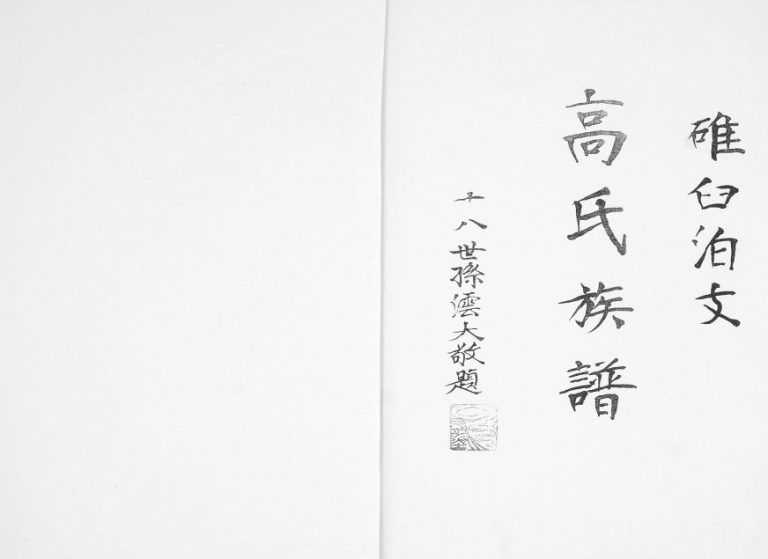 碓臼泊文
高氏族譜
十八世孫澐大敬題